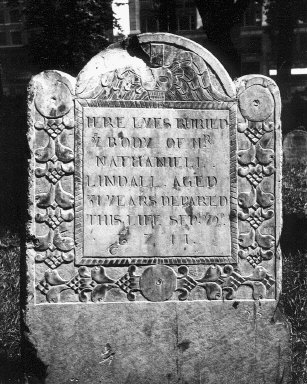 HERE LYES BURIED
Yᵉ BODY OF Mʳ
NATHANIELL
LINDALL AGED
YEARS DEPARED
THIS LIFE SEPᵗ
1711